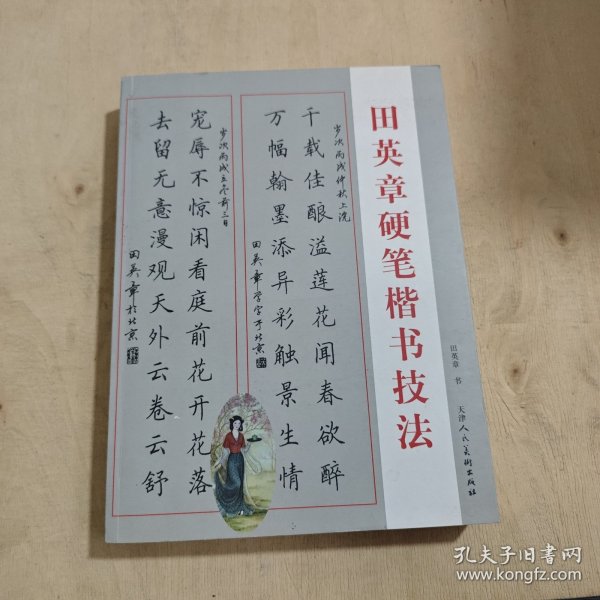 田英章硬笔楷书技法
田英章 书
天津人民美术出版社
岁次丙戌仲秋上浣
千载佳酿溢莲花闻春欲醉
万幅翰墨添异彩触景生情
田英章学字于北京
岁次丙戌立冬前三日
宠辱不惊闲看庭前花开花落
去留无意漫观天外云卷云舒
田英章于北京
孔夫子旧书网
www.kongfz.com